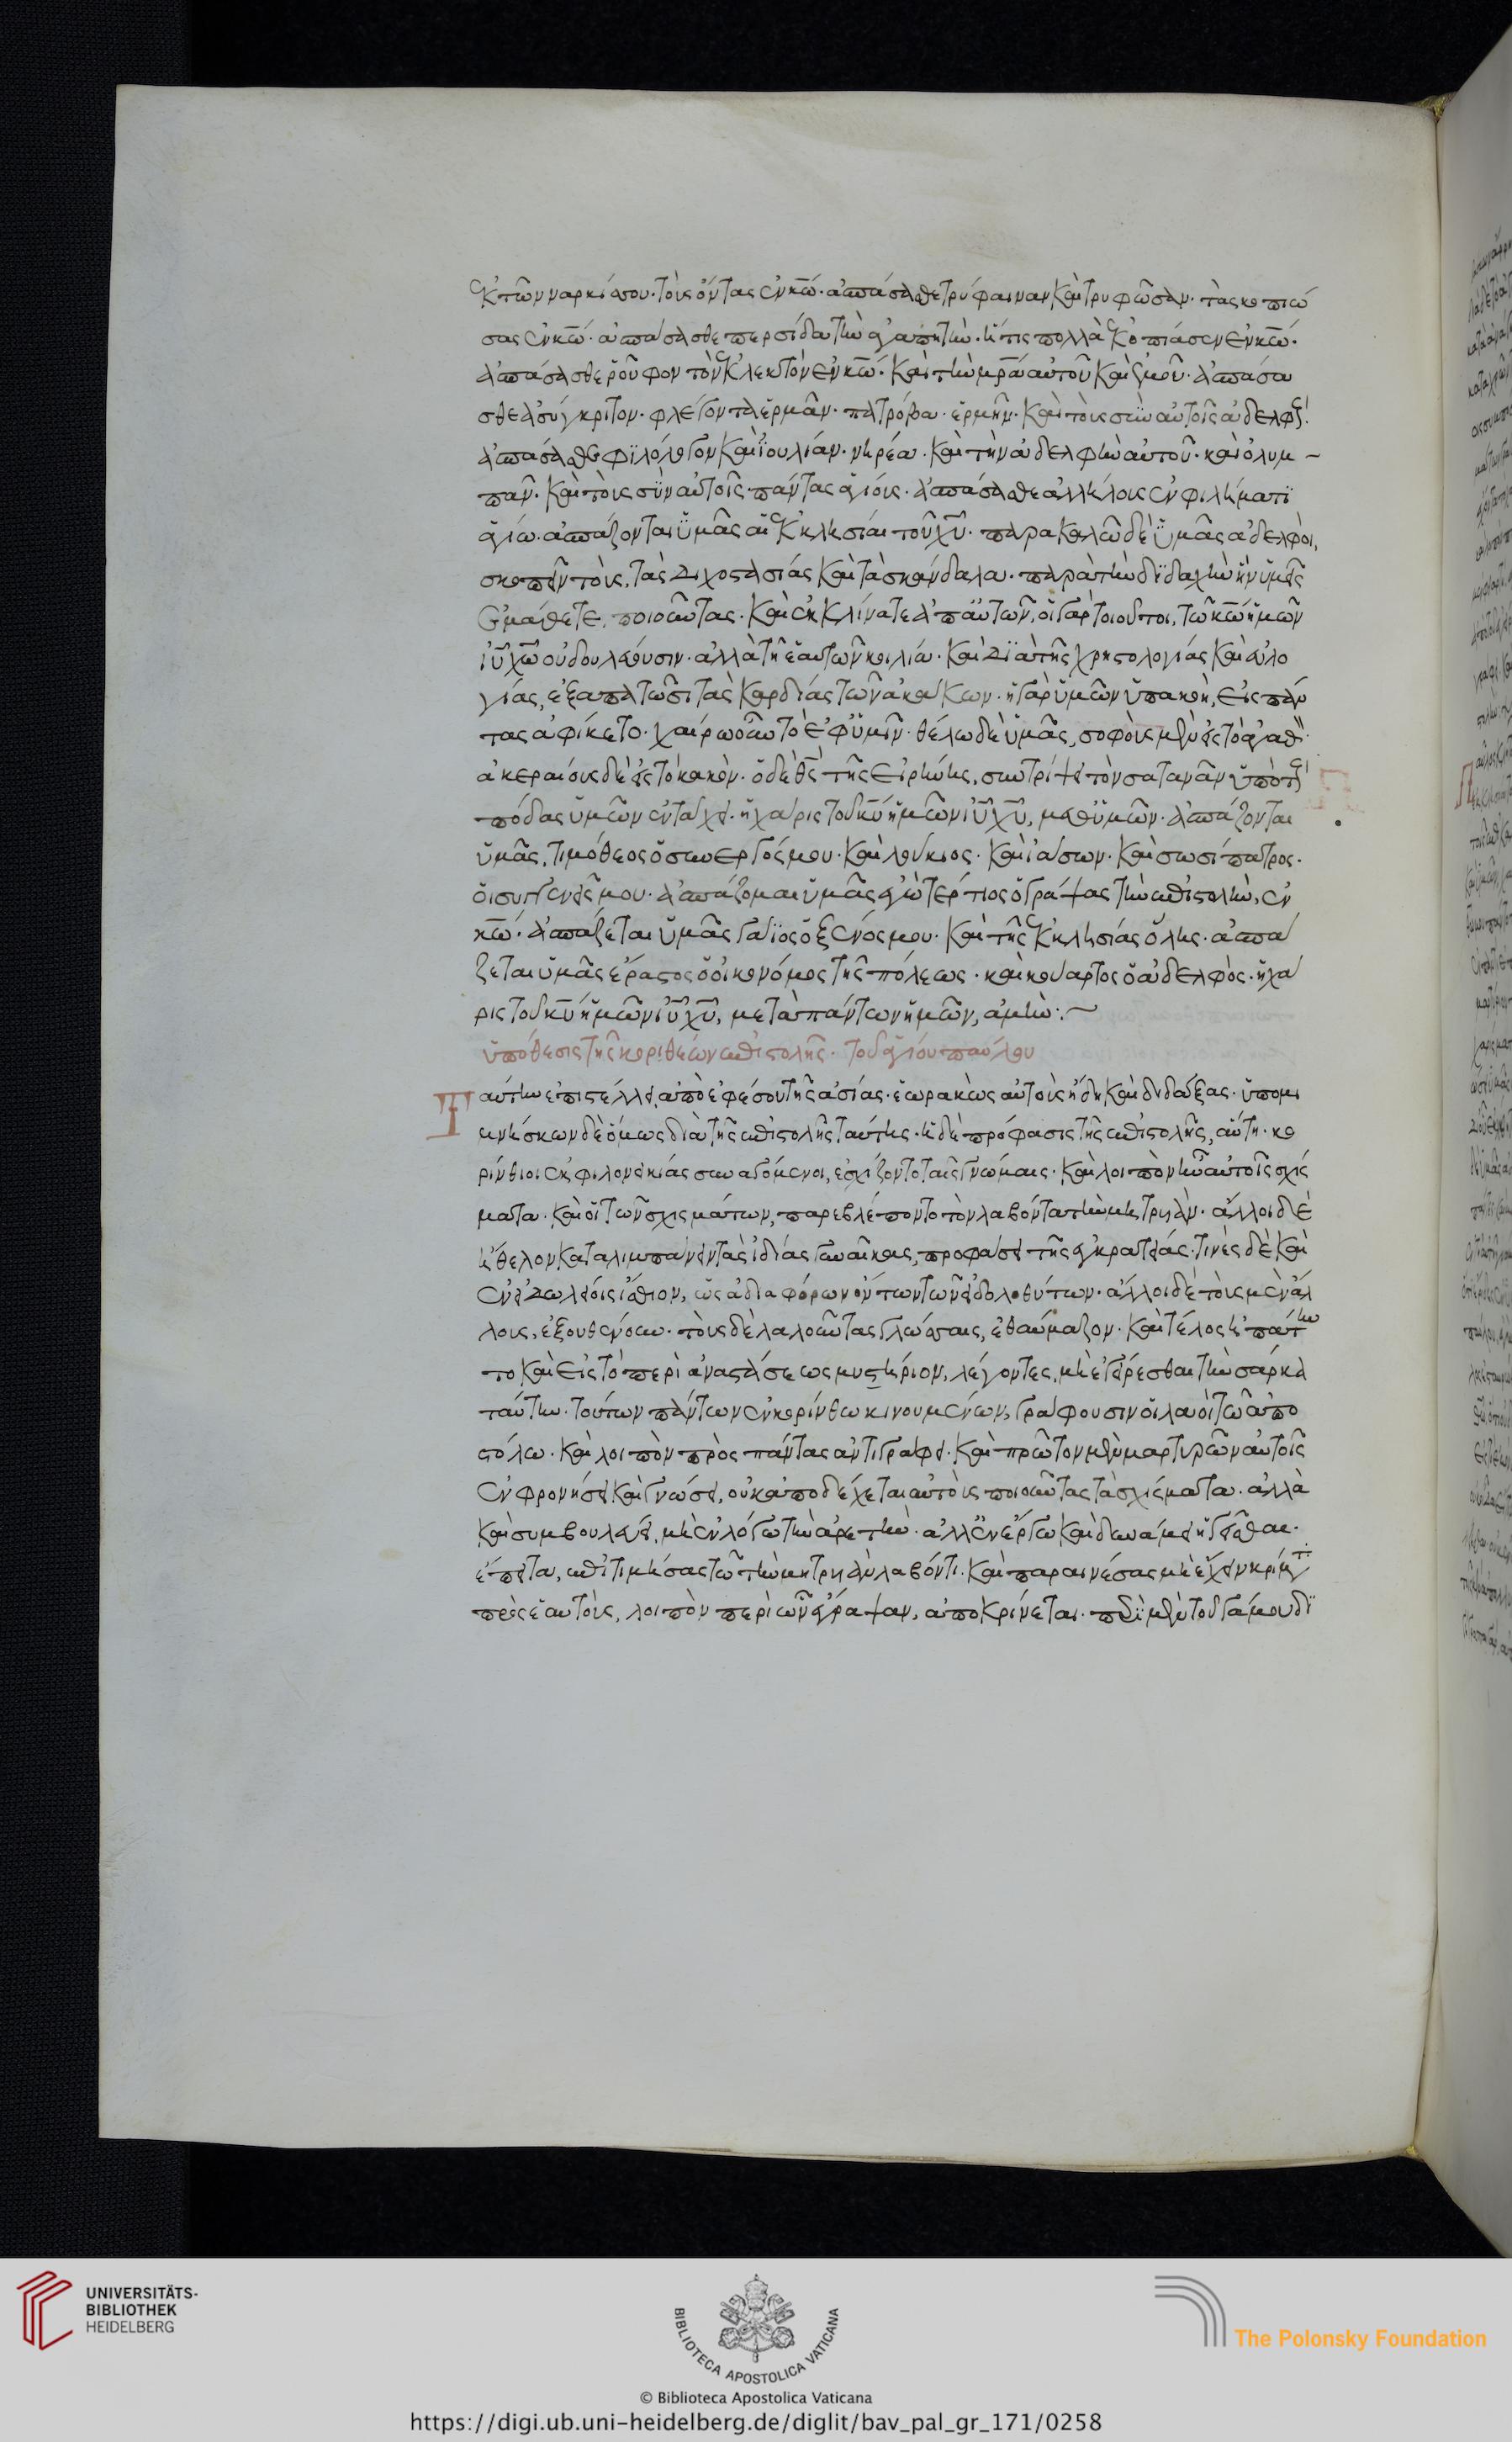 ἐκ τῶν ναρκίσσου· τοὺς ὄντας ἐν κω̅· ἀσπάσασθε τρύφαιναν καὶ τρυφῶσαν· τὰς κοπιώ
σας ἐν κω̅· ἀσπάσασθε περσίδα τὴν ἀγαπητὴν· ἥτις πολλὰ ἐκοπίασεν ἐν κω̅·
ἀσπάσασθε ῥοῦφον τὸν ἐκλεκτὸν ἐν κω̅· καὶ τὴν μρ̅α αὐτοῦ καὶ ἐμοῦ· ἀσπάσα
σθε ἀσύγκριτον· φλέγοντα ἑρμᾶν· πατρόβα· ἑρμῆν· καὶ τοὺς σὺν αὐτοῖς ἀδελφούς·
ἀσπάσασθε φιλόλογον καὶ ἰουλίαν· νηρέα· καὶ τὴν ἀδελφὴν αὐτοῦ· καὶ ὀλυμ
πᾶν· καὶ τοὺς σὺν αὐτοῖς πάντας ἁγίους· ἀσπάσασθε ἀλλήλους ἐν φιλήματι
ἁγίω· ἀσπάζονται ὑμᾶς αἱ ἐκκλησίαι τοῦ χυ̅· παρακαλῶ δὲ ὑμᾶς ἀδελφοὶ,
σκοπεῖν τοὺς, τὰς διχοστασίας καὶ τὰ σκάνδαλα· παρὰ τὴν διδαχὴν ἣν ὑμεῖς
ἐμάθετε, ποιοῦντας· καὶ ἐκκλίνατε ἀπ' αὐτῶν, οἱ γὰρ τοιοῦτοι, τῶ κω̅ ἡμῶν
ιυ̅ χω̅ οὐ δουλεύουσιν· ἀλλὰ τῆ ἑαυτῶν κοιλία· καὶ διὰ τῆς χρηστολογίας καὶ εὐλο
γίας, ἐξαπατῶσι τὰς καρδίας τῶν ἀκάκων· ἡ γὰρ ὑμῶν ὑπακοὴ, εἰς πάν
τας ἀφίκετο· χαίρω οὖν τὸ ἐφ' ὑμῖν· θέλω δὲ ὑμᾶς, σοφοὺς μὲν εἰς τὸ ἀγαθὸν·
ἀκεραίους δὲ εἰς τὸ κακὸν· ὁ δὲ θς̅ τῆς εἰρήνης, συντρίψει τὸν σατανᾶν ὑπὸ τοὺς
πόδας ὑμῶν ἐν τάχει· ἡ χάρις τοῦ κυ̅ ἡμῶν ιυ̅ χυ̅, μεθ' ὑμῶν· ἀσπάζονται
ὑμᾶς, τιμόθεος ὁ συνεργός μου· καὶ λούκιος· καὶ ἰάσων· καὶ σωσίπατρος·
οἱ συγγενεῖς μου· ἀσπάζομαι ὑμᾶς ἐγὼ τέρτιος ὁ γράψας τὴν ἐπιστολὴν, ἐν
κω̅· ἀσπάζεται ὑμᾶς γάϊος ὁ ξένός μου· καὶ τῆς ἐκκλησίας ὅλης· ἀσπά
ζεται ὑμᾶς ἔραστος ὁ οἰκονόμος τῆς πόλεως· καὶ κούαρτος ὁ ἀδελφὸς· ἡ χά
ρις τοῦ κυ̅ ἡμῶν ιυ̅ χυ̅, μετὰ πάντων ἡμῶν, ἀμήν:~
ὑπόθεσις τῆς κοριθέων ἐπιστολῆς· τοῦ ἁγίου παύλου
Ταύτην ἐπιστέλλει, ἀπὸ ἐφέσου τῆς ἀσίας· ἑωρακὼς αὐτοὺς ἤδη καὶ διδάξας· ὑπομι
μνήσκων δὲ ὅμως διὰ τῆς ἐπιστολῆς ταύτης· ἡ δὲ πρόφασις τῆς ἐπιστολῆς, αὕτη· κο
ρίνθιοι ἐκ φιλονεικίας συναγόμενοι, ἐσχίζοντο ταῖς γνώμαις· καὶ λοιπὸν ἦν αὐτοῖς σχίς
ματα· καὶ οἱ τῶν σχισμάτων, παρεβλέποντο τὸν λαβόντα τὴν μητρυιὰν· ἄλλοι δὲ
ἤθελον καταλιμπάνειν τὰς ἰδίας γυναῖκας, προφάσει τῆς ἐγκρατείας· τινὲς δὲ καὶ
ἐν εἰδωλείοις ἤσθιον, ὡς ἀδιαφόρων ὄντων τῶν εἰδολοθύτων· ἄλλοι δὲ τοὺς μὲν ἄλ
λους, ἐξουθενόουν· τοὺς δὲ λαλοῦντας γλώσσαις, ἐθαύμαζον· καὶ τέλος ἠπατῶν
το καὶ εἰς τὸ περὶ ἀναστάσεως μυστήριον, λέγοντες, μὴ ἐγείρεσθαι τὴν σάρκα
ταύτην· τούτων πάντων ἐν κορίνθω κινουμένων, γράφουσιν οἱ λαοὶ τῶ ἀπο
στόλω· καὶ λοιπὸν πρὸς πάντας ἀντιγράφει· καὶ πρῶτον μὲν μαρτυρῶν αὐτοῖς
ἐν φρονήσει καὶ γνώσει, οὐκ ἀποδέχεται αὐτοὺς ποιοῦντας τὰ σχίσματα· ἀλλὰ
καὶ συμβουλεύει, μὴ ἐν λόγω τὴν ἀρετὴν· ἀλλ' ἐν ἔργω καὶ δυνάμει ἡγεῖσθαι·
ἔπειτα, ἐπιτιμήσας τῶ τὴν μητρυιὰν λαβόντι· καὶ παραινέσας μὴ ἔχειν κρίμα
πρὸς ἑαυτοὺς, λοιπὸν περὶ ὧν ἔγραψαν, ἀποκρίνεται· περὶ μὲν τοῦ γάμου δι
UNIVERSITÄTS-
BIBLIOTHEK
HEIDELBERG
BIBLIOTECA APOSTOLICA VATICANA
© Biblioteca Apostolica Vaticana
The Polonsky Foundation
https://digi.ub.uni-heidelberg.de/diglit/bav_pal_gr_171/0258